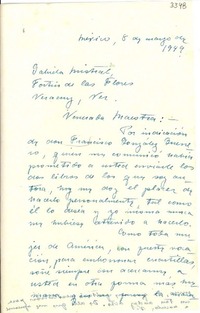 3348
México, 8 de marzo de
1949
Gabriela Mistral,
Fortín de las Flores
Veracruz, Ver.
Venerada Maestra:
Por indicación
de don Francisco González Guerre-
ro, quien me comunicó había
prometido a usted enviarle los
dos libros de los que soy au-
tora, hoy me doy el placer de
hacerlo personalmente, tal como
él lo desea y yo misma nunca
me hubiera atrevido a hacerlo.
Como toda mu-
jer de América, con
para emborronar cuartillas,
soñé siempre con acercarme a
usted en otra forma mas